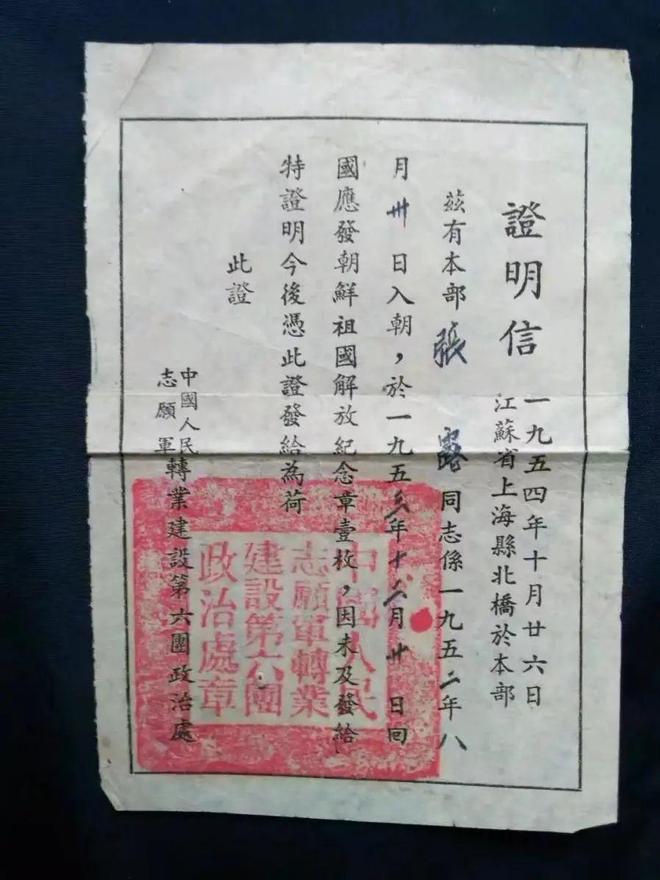 證明信
一九五四年十月廿六日
江蘇省上海縣北橋於本部
茲有本部張露同志係一九五二年八
月卅日入朝，於一九五三年十二月廿日回
國應發朝鮮祖國解放紀念章壹枚，因未及發給
特證明今後憑此證發給為荷
此證
中國人民
志願軍轉業建設第六團政治處
中國人民
志願軍轉業
建設第六團
政治處章